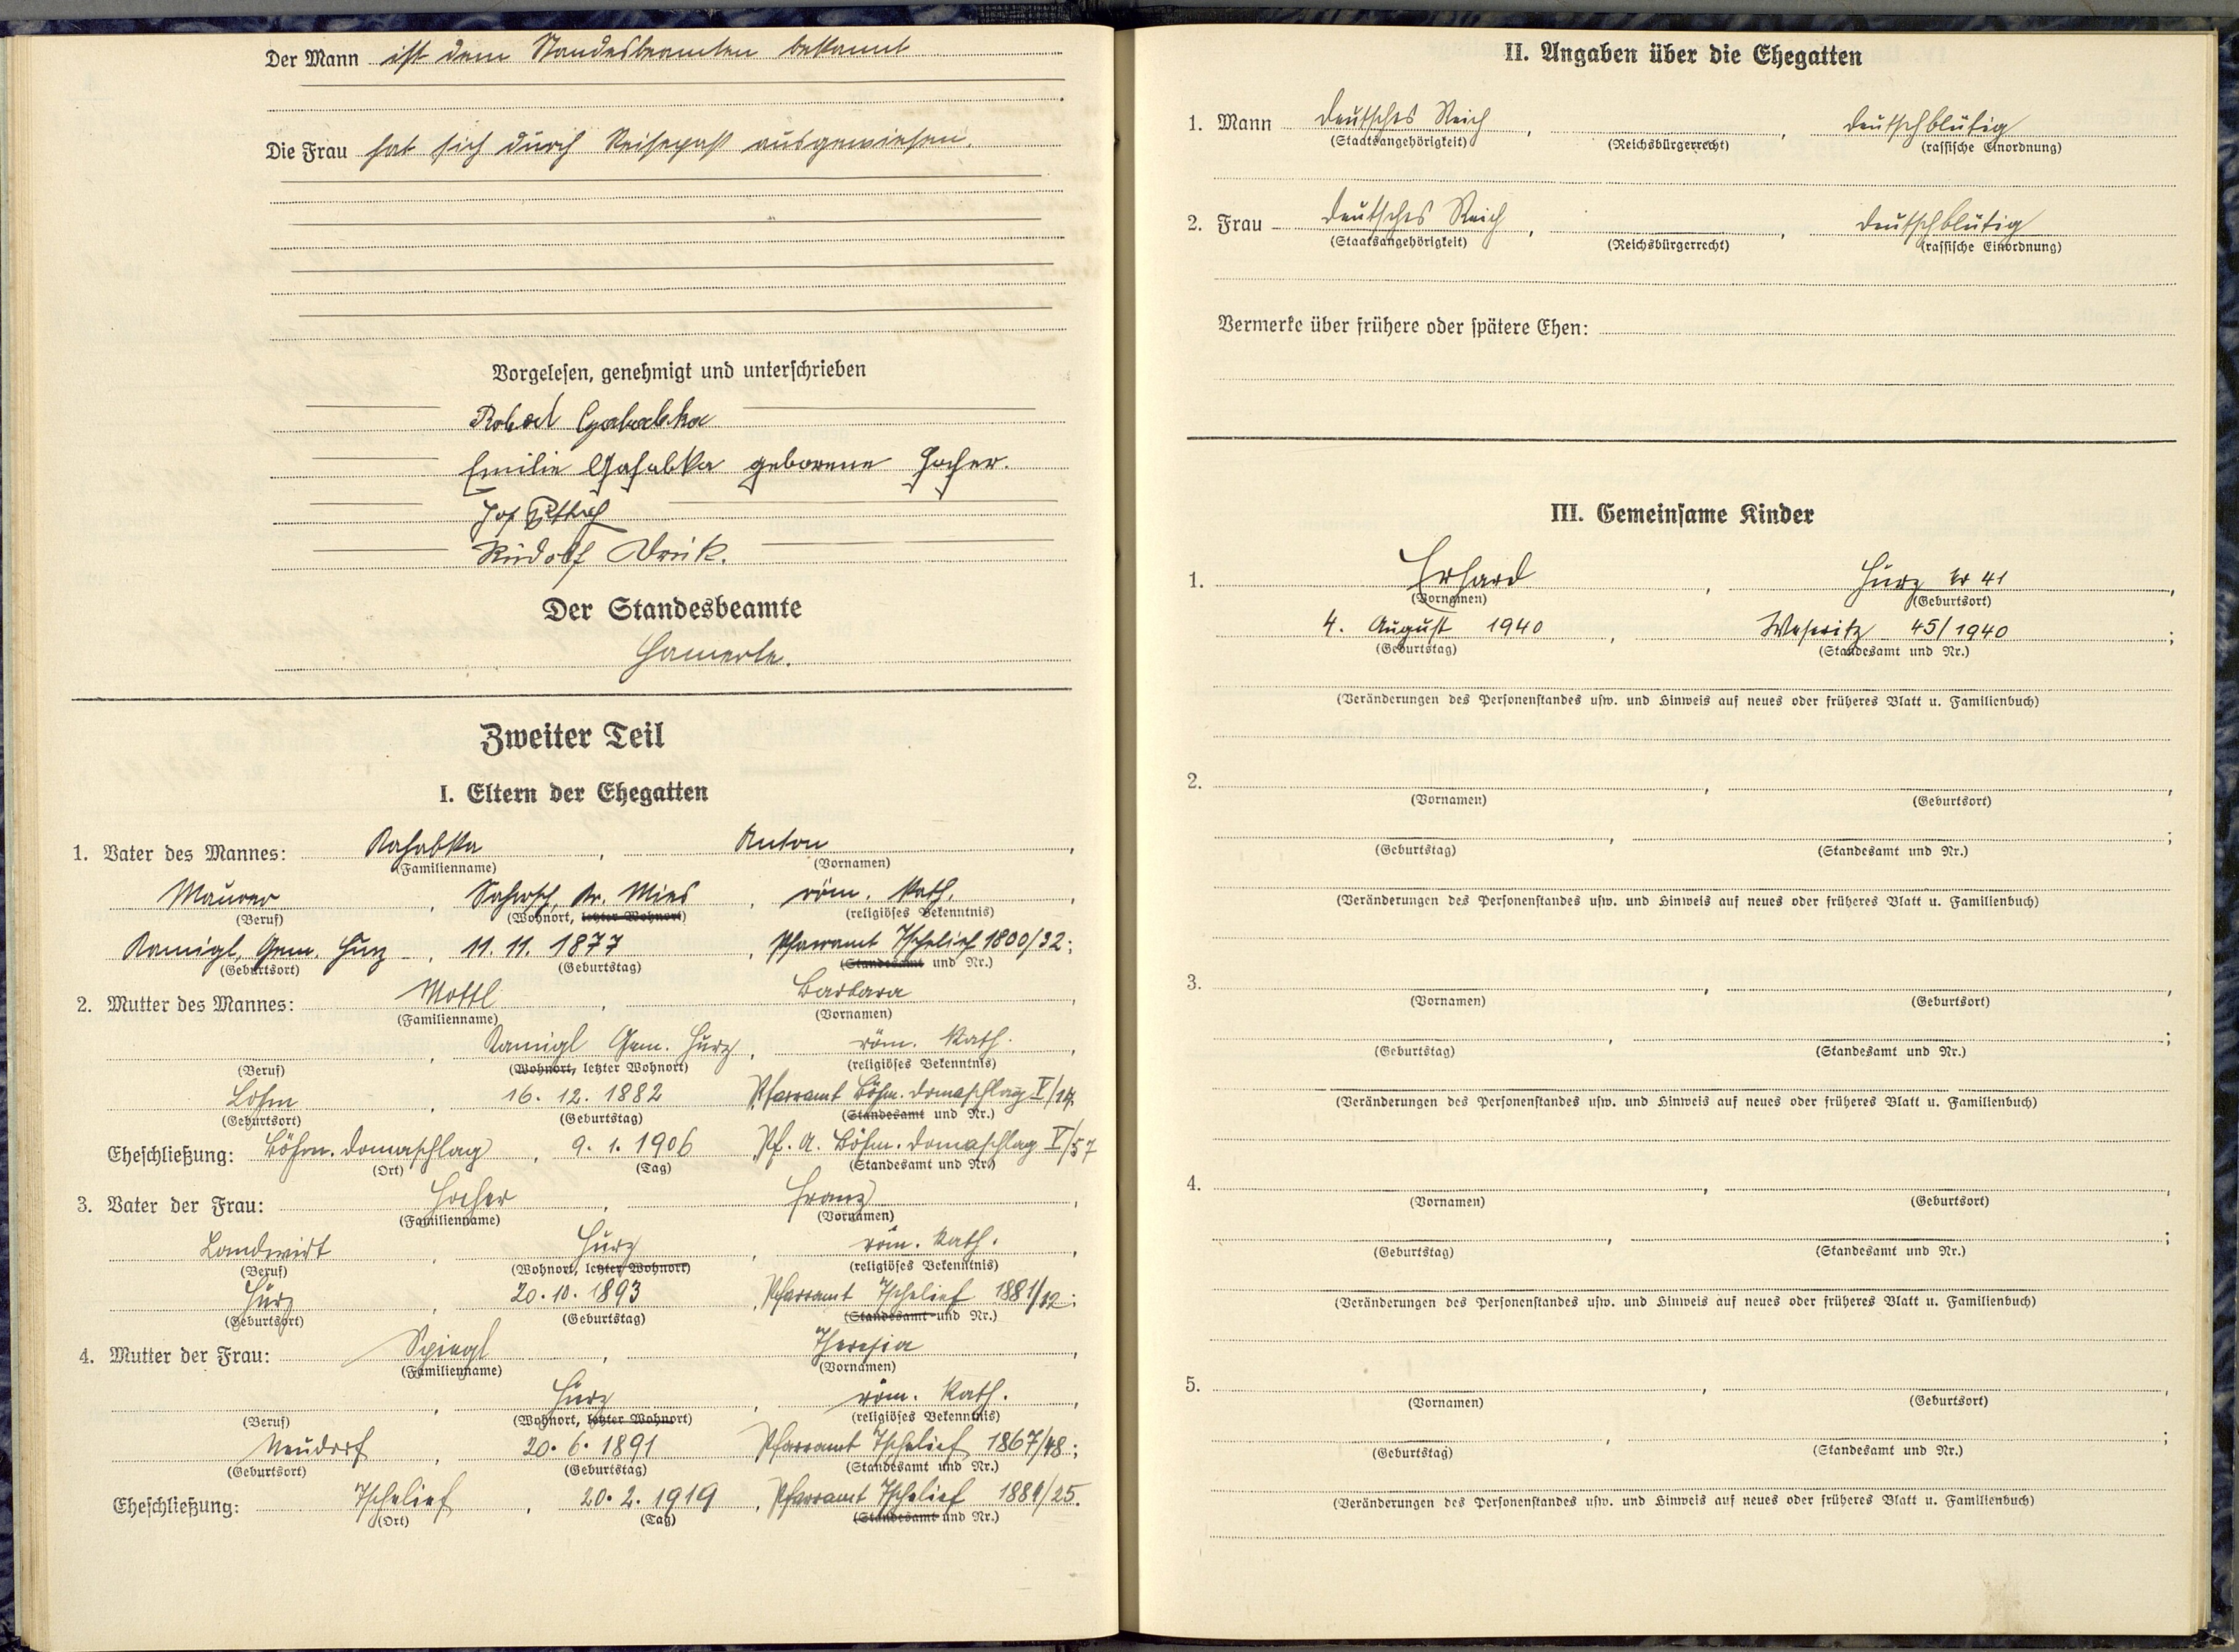 Der Mann ist dem Standesbeamten bekannt
Die Frau hat sich durch Reisepass ausgewiesen.
Vorgelesen, genehmigt und unterschrieben
Robert
Emilie geborene Hocher.
Jos
Rudolf
Der Standesbeamte
Hamerle.
Zweiter Teil
I. Eltern der Ehegatten
1. Vater des Mannes: Anton
(Familienname) (Vornamen)
Maurer, Kr. Mies, röm. kath.,
(Beruf) (Wohnort, letzter Wohnort) (religiöses Bekenntnis)
Ramigl, Gem. Hurz, 11. 11. 1877, Pfarramt Tschelief 1800/32;
(Geburtsort) (Geburtstag) (Standesamt und Nr.)
2. Mutter des Mannes: Mottl, Barbara,
(Familienname) (Vornamen)
, Ramigl Gem. Hurz, röm. kath.,
(Beruf) (Wohnort, letzter Wohnort) (religiöses Bekenntnis)
Lohm, 16. 12. 1882 Pfarramt Böhm. Domaschlag V/14.
(Geburtsort) (Geburtstag) (Standesamt und Nr.)
Eheschließung: Böhm. Domaschlag, 9. 1. 1906 Pf. A. Böhm. Domaschlag V/57
(Ort) (Tag) (Standesamt und Nr.)
3. Vater der Frau: Hocher, Franz,
(Familienname) (Vornamen)
Landwirt, Hurz, röm. kath.,
(Beruf) (Wohnort, letzter Wohnort) (religiöses Bekenntnis)
Hurz, 20. 10. 1893, Pfarramt Tschelief 1881/32;
(Geburtsort) (Geburtstag) (Standesamt und Nr.)
4. Mutter der Frau: Spiegl, Theresia,
(Familienname) (Vornamen)
, Hurz, röm. kath.,
(Beruf) (Wohnort, letzter Wohnort) (religiöses Bekenntnis)
Neudorf, 20. 6. 1891 Pfarramt Tschelief 1867/48;
(Geburtsort) (Geburtstag) (Standesamt und Nr.)
Eheschließung: Tschelief, 20. 2. 1919, Pfarramt Tschelief 1881/25.
(Ort) (Tag) (Standesamt und Nr.)
II. Angaben über die Ehegatten
1. Mann Deutsches Reich, , deutschblütig
(Staatsangehörigkeit) (Reichsbürgerrecht) (rassische Einordnung)
2. Frau Deutsches Reich, , deutschblütig
(Staatsangehörigkeit) (Reichsbürgerrecht) (rassische Einordnung)
Vermerke über frühere oder spätere Ehen:
III. Gemeinsame Kinder
1. Erhard, Hurz Nr 41,
(Vornamen) (Geburtsort)
4. August 1940, Weseritz 45/1940;
(Geburtstag) (Standesamt und Nr.)
(Veränderungen des Personenstandes usw. und Hinweis auf neues oder früheres Blatt u. Familienbuch)
2. , ,
(Vornamen) (Geburtsort)
, ;
(Geburtstag) (Standesamt und Nr.)
(Veränderungen des Personenstandes usw. und Hinweis auf neues oder früheres Blatt u. Familienbuch)
3. , ,
(Vornamen) (Geburtsort)
, ;
(Geburtstag) (Standesamt und Nr.)
(Veränderungen des Personenstandes usw. und Hinweis auf neues oder früheres Blatt u. Familienbuch)
4. , ,
(Vornamen) (Geburtsort)
, ;
(Geburtstag) (Standesamt und Nr.)
(Veränderungen des Personenstandes usw. und Hinweis auf neues oder früheres Blatt u. Familienbuch)
5. , ,
(Vornamen) (Geburtsort)
, ;
(Geburtstag) (Standesamt und Nr.)
(Veränderungen des Personenstandes usw. und Hinweis auf neues oder früheres Blatt u. Familienbuch)